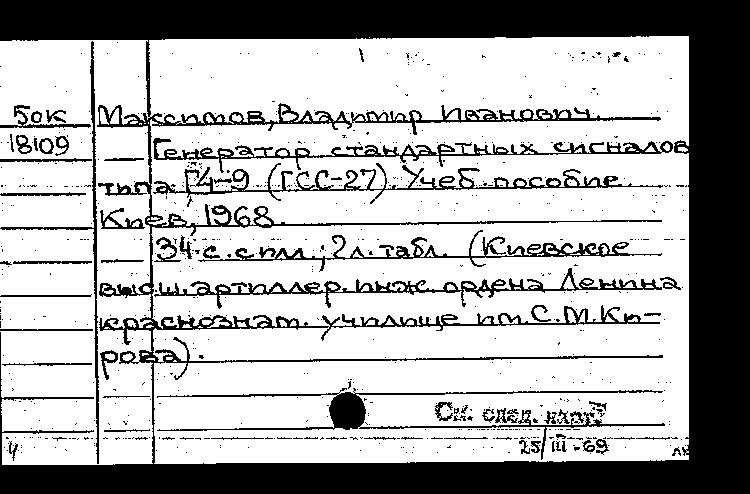 50К Максимов, Владимир Иванович.
18109 Генератор стандартных сигналов
типа Г4-9 (ГСС-27). Учеб. пособие.
Киев, 1968.
34 с. с илл.; 2 л. табл. (Киевское
высш. артиллер. инж. ордена Ленина
краснознам. училище им. С.М. Ки-
рова).
См. след. карт.
4 25/III-69